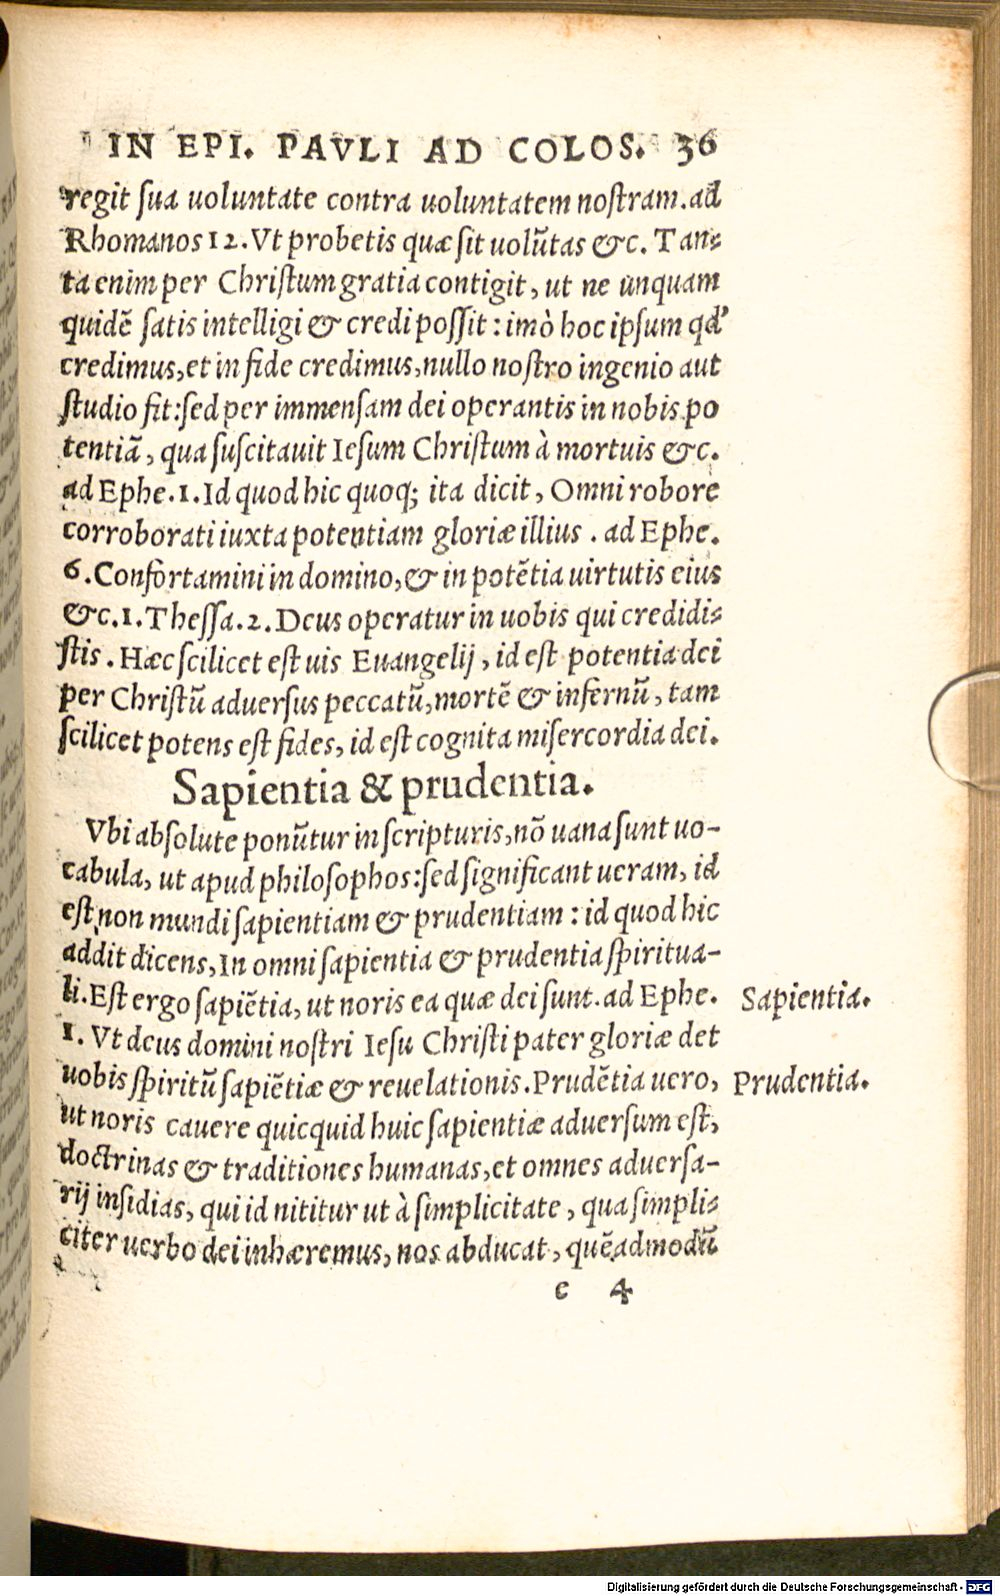 IN EPI. PAVLI AD COLOS. 36
regit sua uoluntate contra uoluntatem nostram. ad
Rhomanos 12. Vt probetis quæ sit uolũtas &c. Tan-
ta enim per Christum gratia contigit, ut ne unquam
quidẽ satis intelligi & credi possit: imò hoc ipsum qd'
credimus, et in fide credimus, nullo nostro ingenio aut
studio fit: sed per immensam dei operantis in nobis po
tentiã, qua suscitauit Iesum Christum à mortuis &c.
ad Ephe. 1. Id quod hic quoq; ita dicit, Omni robore
corroborati iuxta potentiam gloriæ illius. ad Ephe.
6. Confortamini in domino, & in potẽtia uirtutis eius
&c. 1. Thessa. 2. Deus operatur in uobis qui credidi-
stis. Hæc scilicet est uis Euangelij, id est potentia dei
per Christũ aduersus peccatũ, mortẽ & infernũ, tam
scilicet potens est fides, id est cognita misercordia dei.
Sapientia & prudentia.
Vbi absolute ponũtur in scripturis, nõ uana sunt uo-
cabula, ut apud philosophos: sed significant ueram, id
est, non mundi sapientiam & prudentiam: id quod hic
addit dicens, In omni sapientia & prudentia spiritua-
li. Est ergo sapiẽtia, ut noris ea quæ dei sunt. ad Ephe.
Sapientia.
1. Vt deus domini nostri Iesu Christi pater gloriæ det
uobis spiritũ sapiẽtiæ & reuelationis. Prudẽtia uero,
Prudentia.
ut noris cauere quicquid huic sapientiæ aduersum est,
doctrinas & traditiones humanas, et omnes aduersa-
rij insidias, qui id nititur ut à simplicitate, qua simpli-
citer uerbo dei inhæremus, nos abducat, quẽadmodũ
e 4
Digitalisierung gefördert durch die Deutsche Forschungsgemeinschaft - DFG